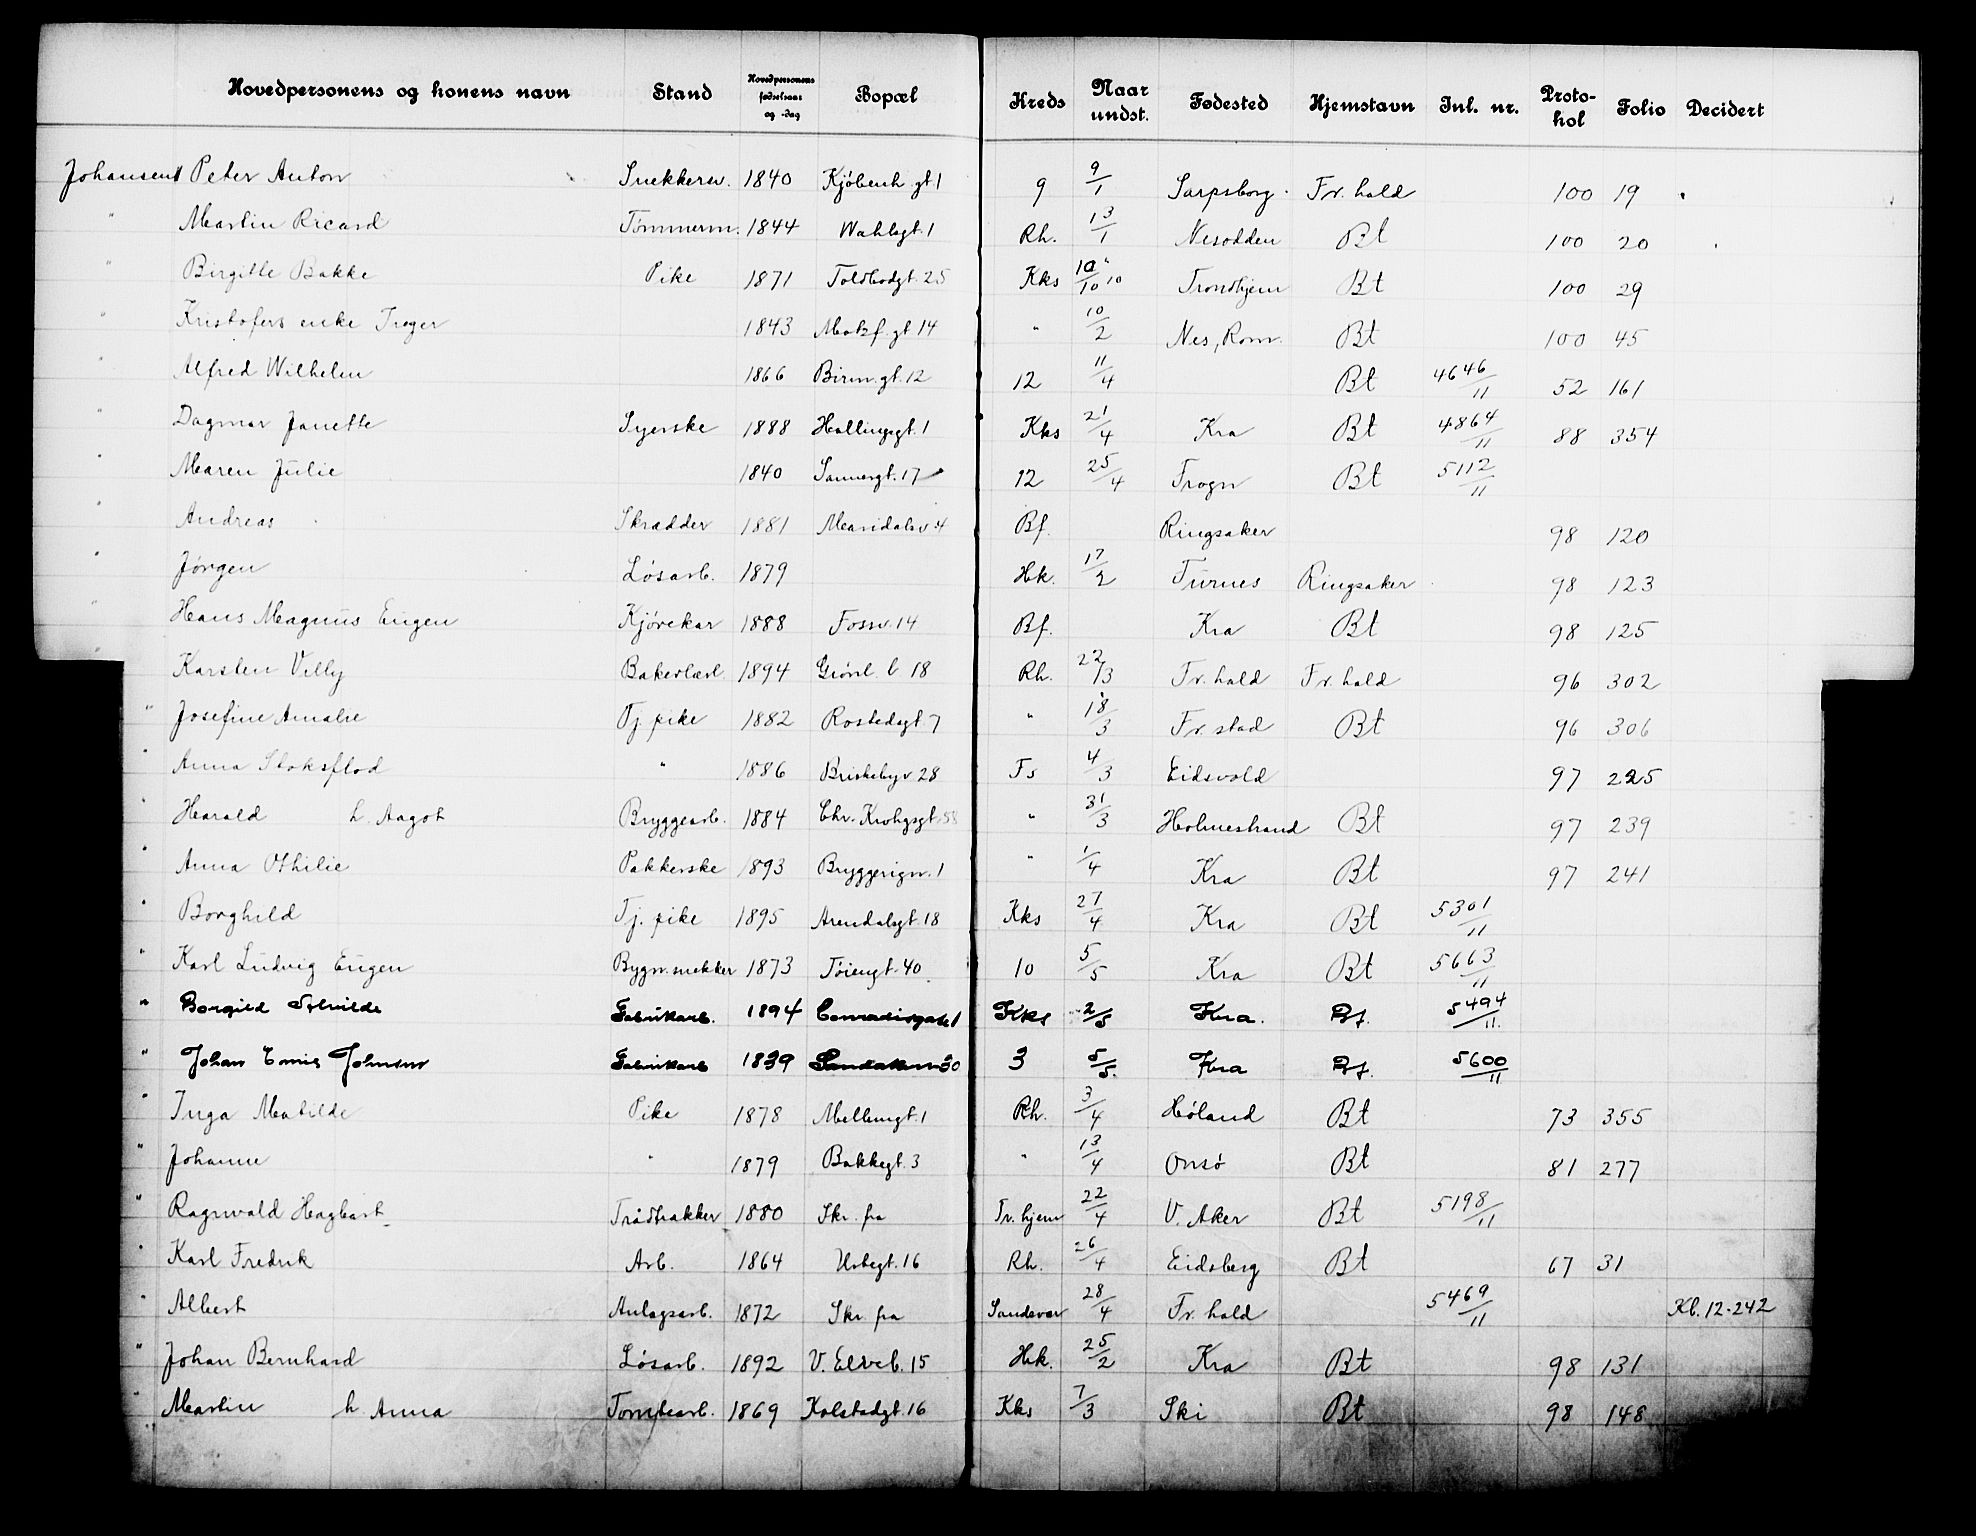 Hovedpersonens og konens navn Stand Hovedpersonens fødselsaar og -dag Bopæl Kreds Naar undst. Fødested Hjemstavn Inl. nr. Protokol Folio Decidert
Johansen Peter Anton Snekkersv. 1840 Kjøbenh. gt 1 9 9/1 Sarpsborg. Fr. hald 100 19
" Martin Ricard Tømmerm. 1844 Wahlsgt. 1 Rh. 13/1 Nesodden Bt 100 20
" Birgitte Bakke Pike 1871 Toldbodgt. 25 Kks 10/10 10 Trondhjem Bt 100 29
" Kristofers enke Treger 1843 Makrf. gt 14 " 10/2 Nes, Rom. Bt 100 45
" Alfred Wilhelm 1866 Birm. gt. 12 12 11/4 Bt 4646/11 52 161
" Dagmar Janette Syerske 1888 Hallingsgt. 1 Kks 21/4 Kra Bt 4864/11 88 354
" Maren Julie 1840 Sannergt. 17 12 25/4 Frogn Bt 5112/11
" Andreas Skrædder 1881 Maridalsv 4 Bf. Ringsaker 98 120
" Jørgen Løsarb. 1879 Hk. 17/2 Furnes Ringsaker 98 123
" Hans Magnus Eugen Kjørekar 1888 Fossv. 14 Bf. Kra Bt 98 125
" Karsten Villy Bakerlærl. 1894 Grønl. l 18 Rh. 22/3 Fr. hald Fr. hald 96 302
" Josefine Amalie Tj. pike 1882 Rostedsgt 7 " 18/3 Fr. stad Bt 96 306
" Anna Stoksflod " 1886 Briskebyv 28 Fs 4/3 Eidsvold 97 225
" Harald h. Aagot Bryggearb. 1884 Chr. Krohgsgt. 58 " 31/3 Holmestrand Bt 97 239
" Anna Othilie Pakkerske 1893 Bryggerigv. 1 " 1/4 Kra Bt 97 241
" Borghild Tj. pike 1895 Arendalsgt. 18 Kks 27/4 Kra Bt 5301/11
" Karl Ludvig Eugen Bygn. snekker 1873 Tøiengt. 40 10 5/5 Kra Bt 5663/11
" Borgild Fabrikarb. 1894 1 Kks 2/5 Kra. Bt. 5494/11
" Johan Johnsen Fabrikarb 1839 30 3 5/5. Kra Bt. 5600/11
" Inga Matilde Pike 1878 Mellumgt. 1 Rh. 3/4 Høland Bt 73 355
" Johanne " 1879 Bakkegt. 3 " 13/4 Onsø Bt 81 277
" Ragnvald Hagbart Trådtrakker 1880 Skr. fra Tr. hjem 22/4 V. Aker Bt 5198/11
" Karl Fredrik Arb. 1864 Urtegt. 16 Rh. 26/4 Eidsberg Bt 67 31
" Albert Anlagsarb. 1872 Skr. fra Sandevær 28/4 Fr. hald 5469/11 Kl. 12-242
" Johan Bernhard Løsarb. 1892 V. Elveb. 15 Hk. 25/2 Kra Bt 98 131
" Martin h. Anna Tomtearb. 1869 Kolstadgt. 16 Kks 7/3 Ski Bt 98 148